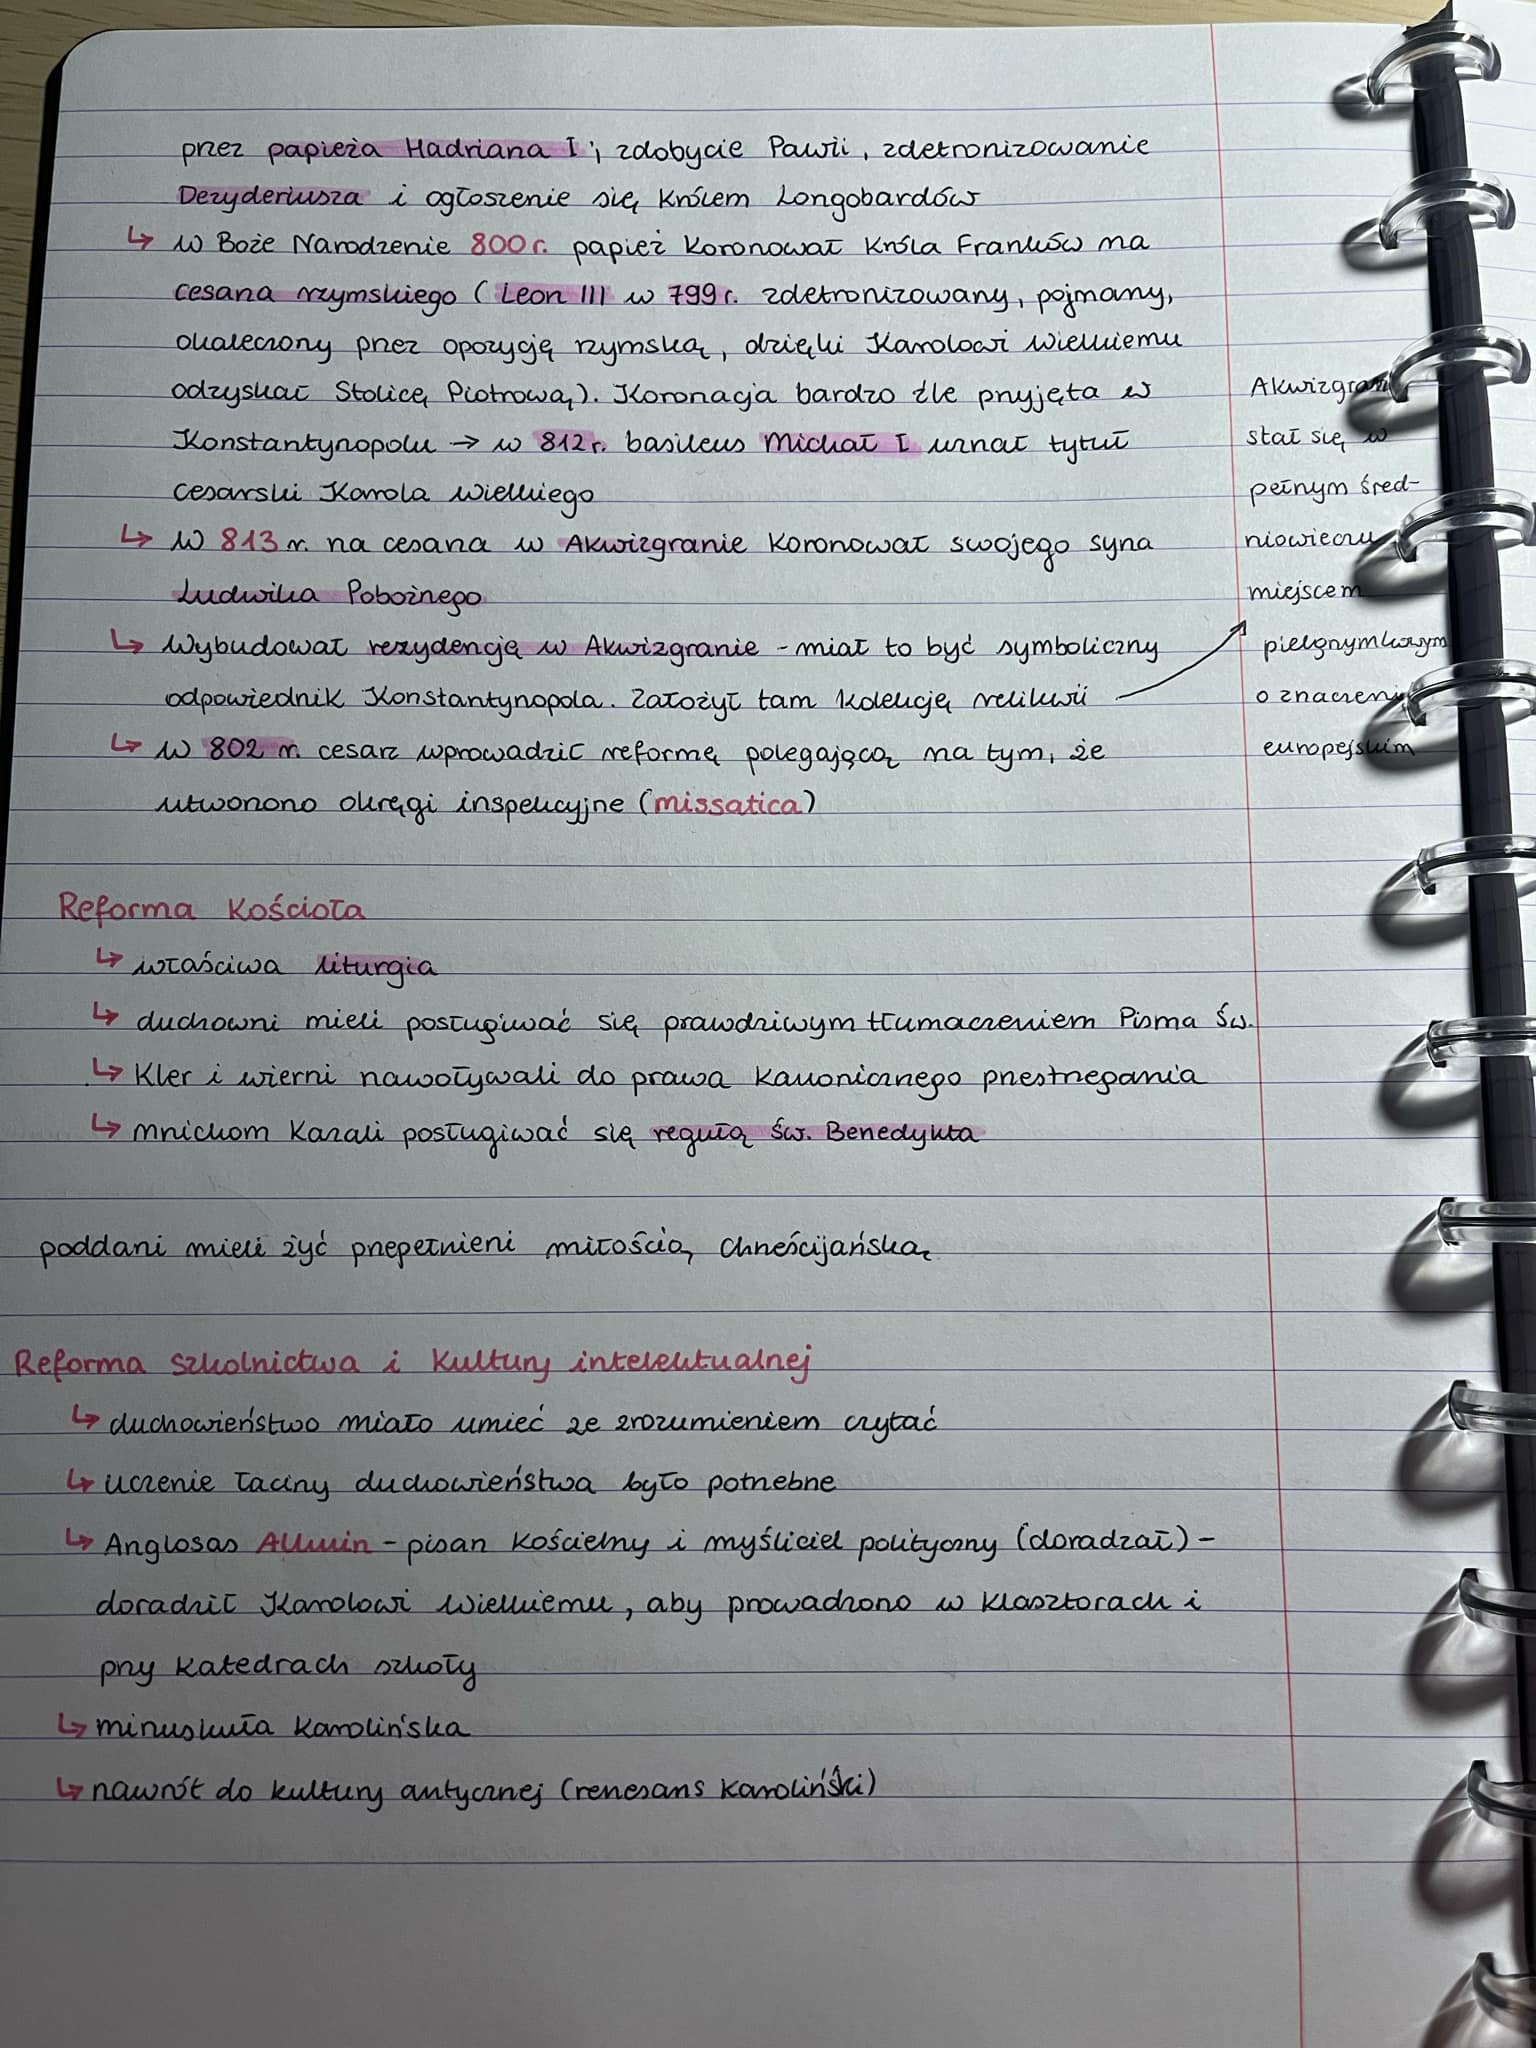 przez papieża Hadriana I i zdobycie Pawii, zdetronizowanie
Dezyderiusza i ogłoszenie się królem Longobardów
↳ w Boże Narodzenie 800 r. papież koronował króla Franków na
cesarza rzymskiego (Leon III w 799 r. zdetronizowany, pojmany,
okaleczony przez opozycję rzymską, dzięki Karolowi Wielkiemu
odzyskał Stolicę Piotrową). Koronacja bardzo źle przyjęta w
Konstantynopolu → w 812 r. basileus Michał I uznał tytuł
cesarski Karola Wielkiego
↳ W 813 r. na cesarza w Akwizgranie koronował swojego syna
Ludwika Pobożnego
↳ Wybudował rezydencję w Akwizgranie - miał to być symboliczny
odpowiednik Konstantynopola. Założył tam kolekcję relikwii
↳ w 802 r. cesarz wprowadził reformę polegającą na tym, że
utworzono okręgi inspekcyjne (missatica)
Akwizgran
stał się w
pełnym śred-
niowieczu
miejscem
pielgrzymkowym
o znaczeniu
europejskim
Reforma Kościoła
↳ właściwa liturgia
↳ duchowni mieli posługiwać się prawdziwym tłumaczeniem Pisma Św.
↳ Kler i wierni nawoływali do prawa kanonicznego przestrzegania
↳ mnichom kazali posługiwać się regułą św. Benedykta
poddani mieli żyć przepełnieni miłością chrześcijańską
Reforma szkolnictwa i kultury intelektualnej
↳ duchowieństwo miało umieć ze zrozumieniem czytać
↳ uczenie łaciny duchowieństwa było potrzebne
↳ Anglosas Alkuin - pisarz kościelny i myśliciel polityczny (doradzał) -
doradził Karolowi Wielkiemu, aby prowadzono w klasztorach i
przy katedrach szkoły
↳ minuskuła karolińska
↳ nawrót do kultury antycznej (renesans karoliński)